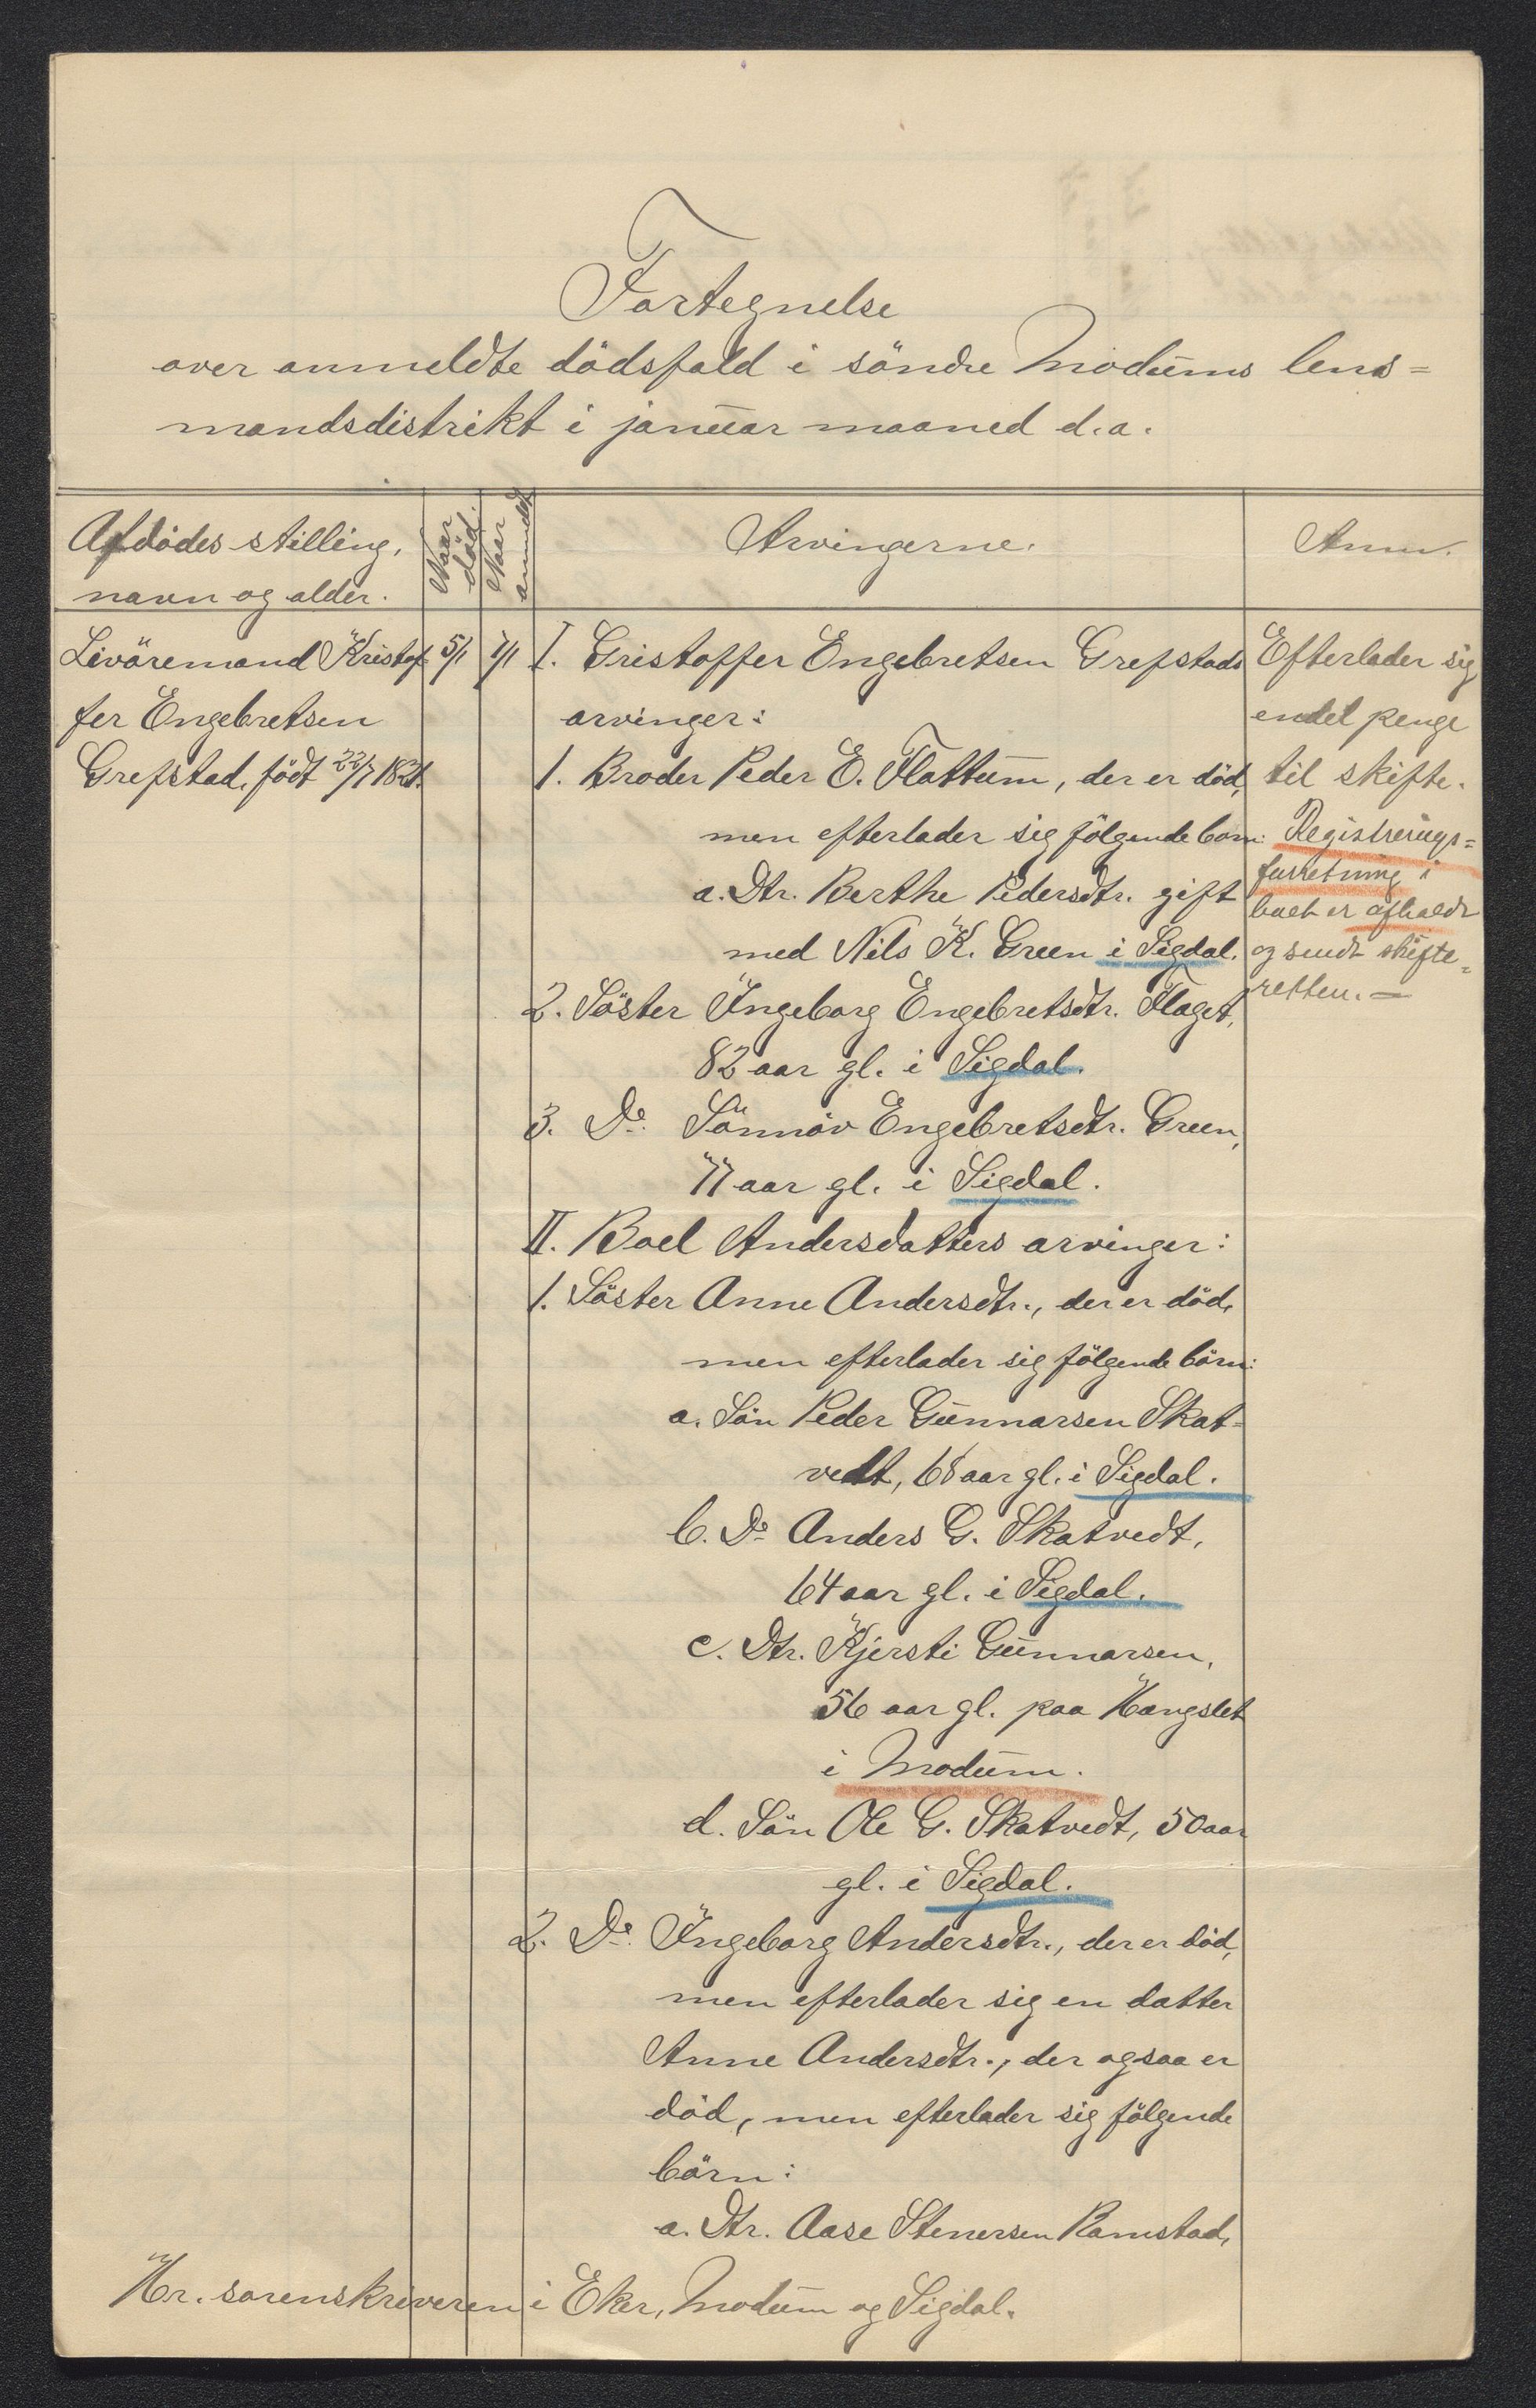 Fortegnelse
over anmeldte dödsfald i söndre Modums lens=
mandsdistrikt i januar maaned d.a.
Afdödes stilling,
navn og alder.
Naar
död.
Naar
anmeldt
Arvingerne.
Anm.
Livöremand Kristof-
fer Engebretsen
Grefstad, födt 22/7 1821.
5/1
7/1
I. Gristoffer Engebretsen Grefstads
arvinger:
1. Broder Peder E. Flattum, der er död,
men efterlader sig fölgende börn:
a. Dtr. Berthe Pedersdtr. gift
med Nils K. Green i Sigdal.
2. Söster Ingeborg Engebretsdtr. Flaget,
82 aar gl. i Sigdal.
3. Do. Sönnöv Engebretsdtr. Green,
77 aar gl. i Sigdal.
II. Boel Andersdatters arvinger:
1. Söster Anne Andersdtr., der er död,
men efterlader sig fölgende börn:
a. Sön Peder Gunnarsen Skat=
vedt, 68 aar gl. i Sigdal.
b. Do Anders G. Skatvedt,
64 aar gl. i Sigdal.
c. Dtr. Kjersti Gunnarsen,
56 aar gl. paa Hængslet
i Modum.
d. Sön Ole G. Skatvedt, 50 aar
gl. i Sigdal.
2. Do. Ingeborg Andersdtr., der er död,
men efterlader sig en datter
Anne Andersdtr., der ogsaa er
död, men efterlader sig fölgende
börn:
a. Dtr. Aase Stenersen Ramstad,
Efterlader sig
endel penge
til skifte.
Registrerings=
forretning i
boet er afholdt
og sendt skifte=
retten. —
Hr. sorenskriveren i Eker, Modum og Sigdal.